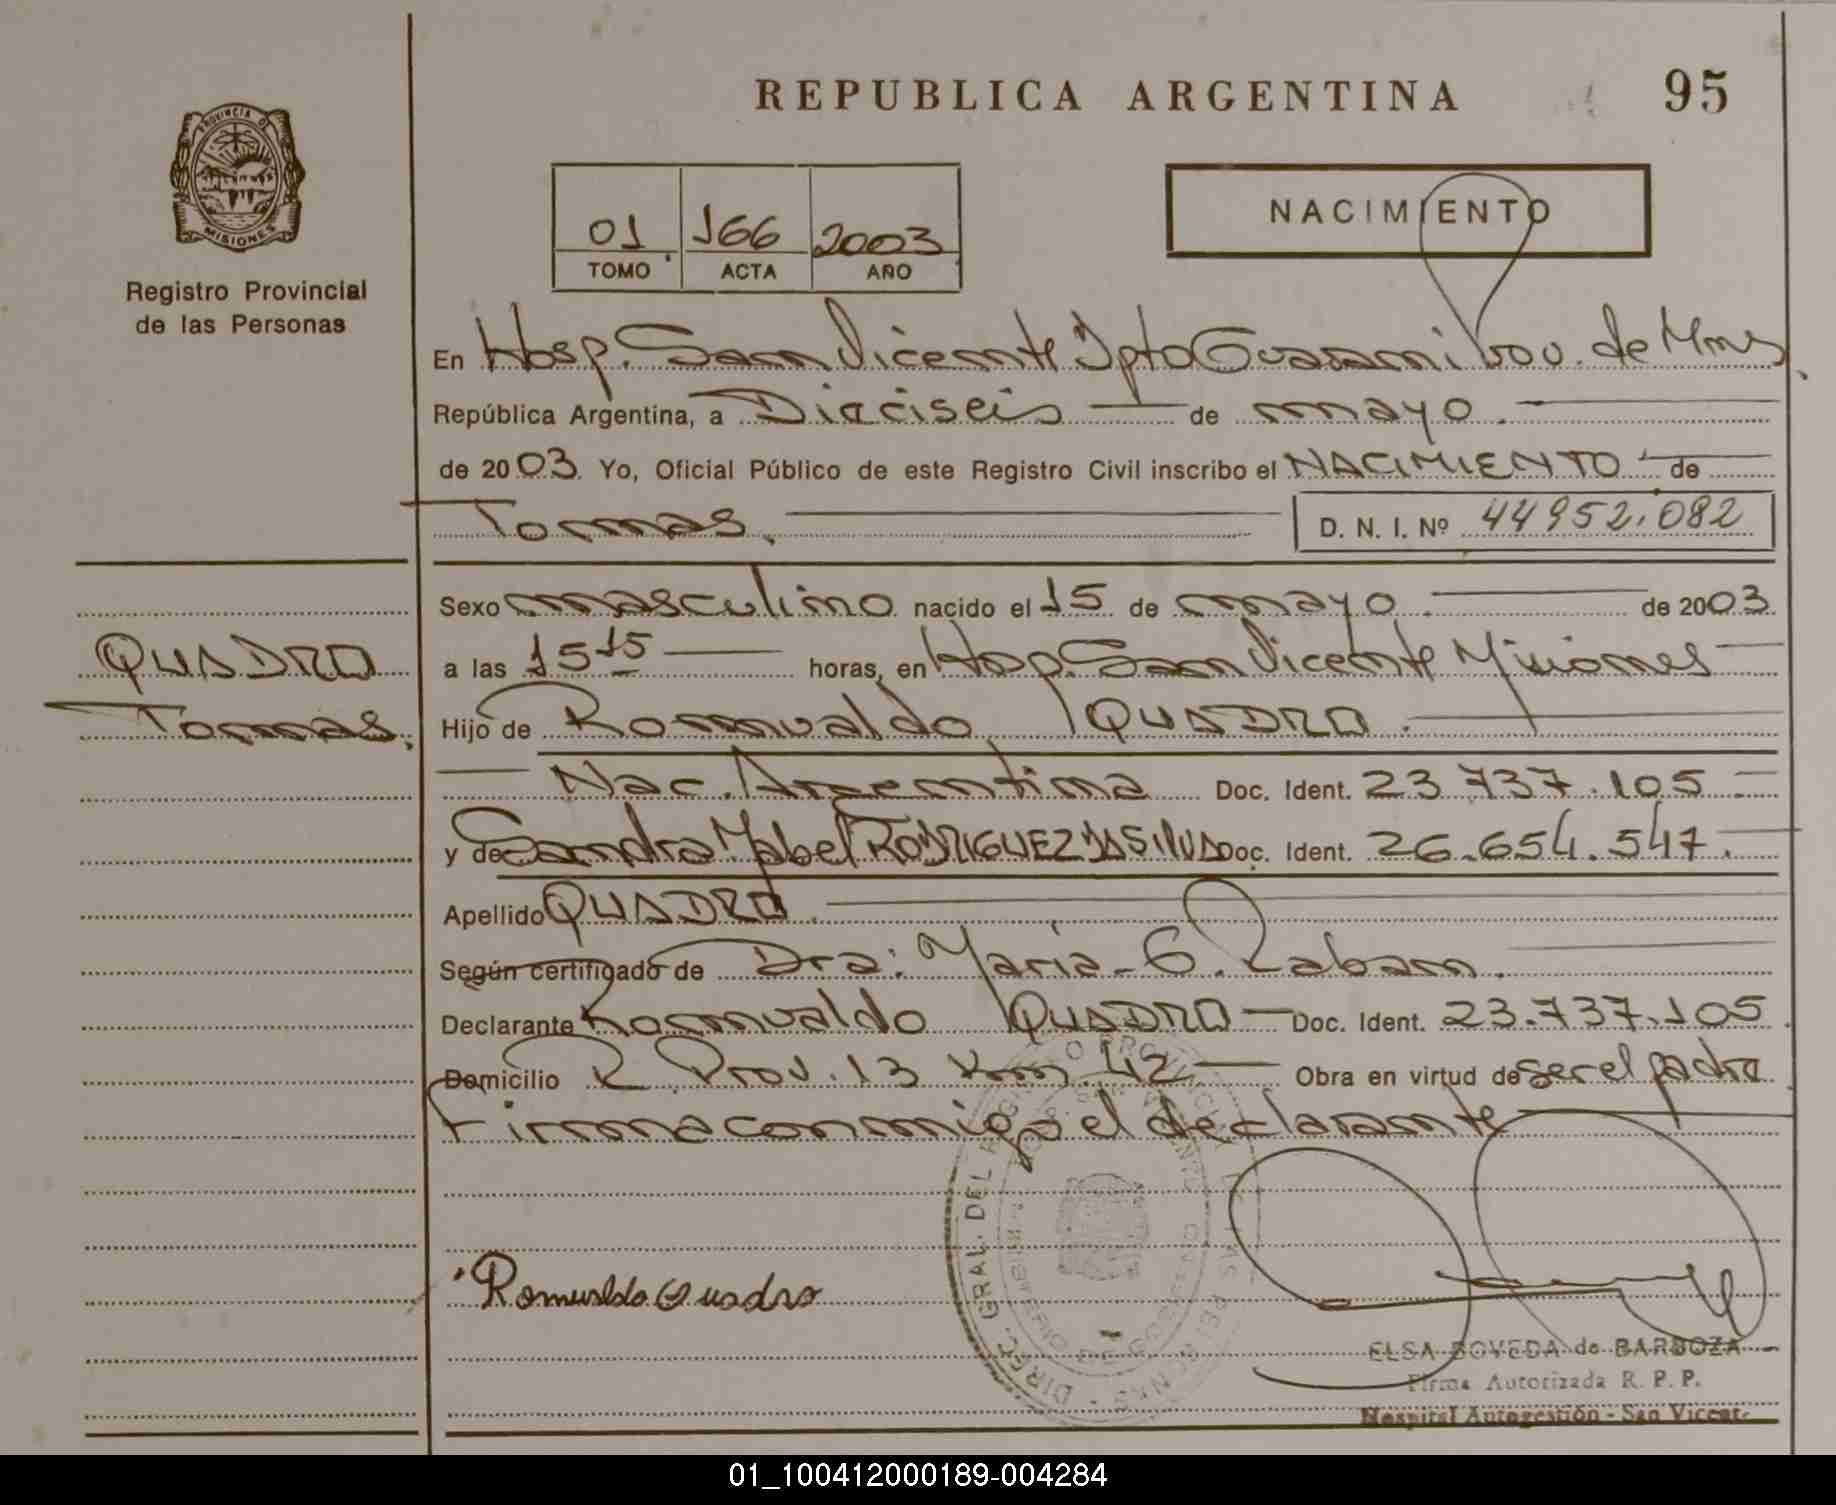 REPUBLICA ARGENTINA
95
PROVINCIA DE
MISIONES
Registro Provincial
de las Personas
01 166 2003
TOMO ACTA AÑO
NACIMIENTO
En Hosp. San Vicente Dpto Guarani Prov. de Mnes
República Argentina, a Dieciseis de mayo.
de 2003. Yo, Oficial Público de este Registro Civil inscribo el NACIMIENTO de
Tomas.
D. N. I. Nº 44952.082
QUADRO
Tomas.
Sexo masculino nacido el 15 de mayo. de 2003
a las 15 15 horas, en Hosp. San Vicente Misiones
Hijo de Romualdo QUADRO.
Nac. Argentina Doc. Ident. 23.737.105
y de Sandra Mabel RODRIGUEZ DA SILVA Doc. Ident. 26.654.547.
Apellido QUADRO.
Según certificado de Dra: Maria G.
Declarante Romualdo QUADRO Doc. Ident. 23.737.105
Domicilio R. Prov. 13 Km. 42 Obra en virtud de ser el padre
Firma conmigo el declarante
DIREC. GRAL. DEL REGISTRO PROVINCIAL DE LAS PERSONAS
Romualdo Quadro
ELSA BOVEDA de BARBOZA
Firma Autorizada R. P. P.
Hospital Autogestión - San Vicente
01_100412000189-004284